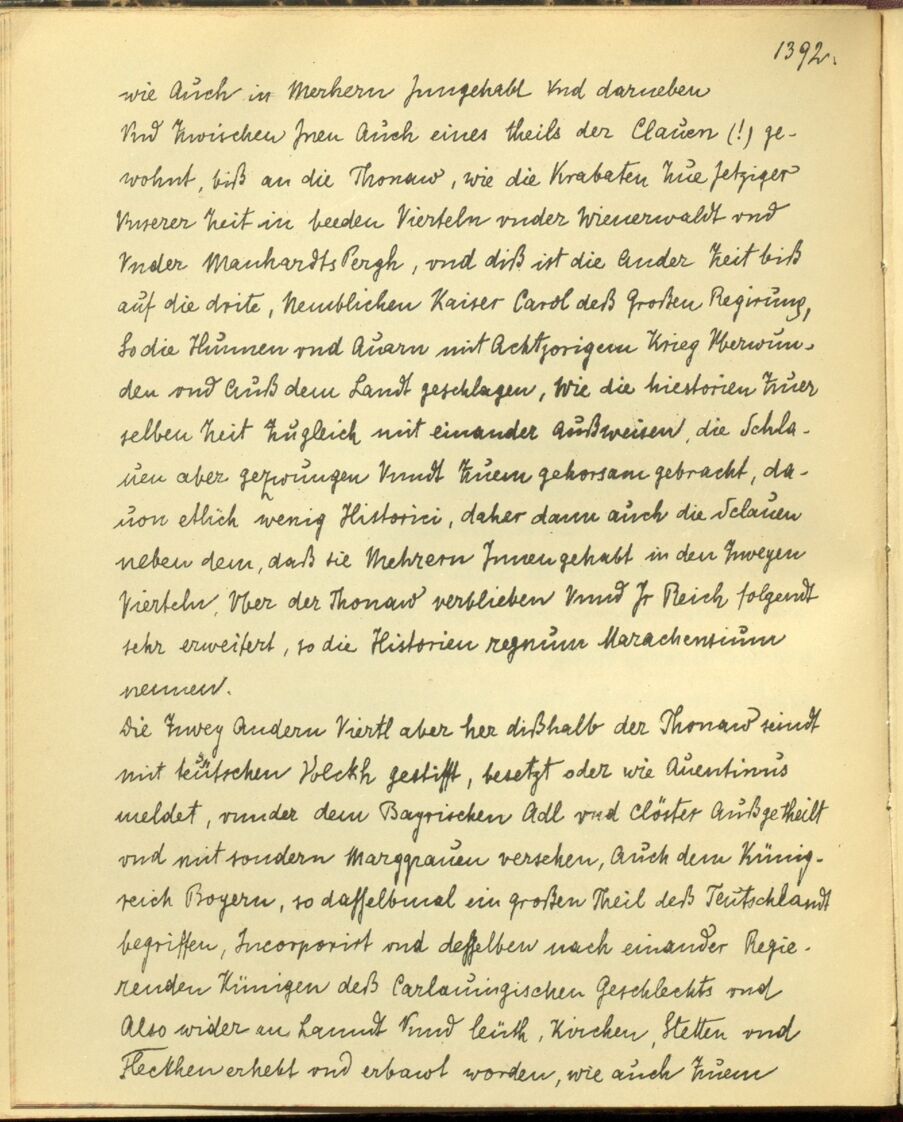 1392.
wie Auch in Merhern Jnngehabt vnd darneben
Vnd Zwischen Jnen Auch eines theils der Clauen (!) ge-
wohnt, biß an die Thonaw, wie die Krabaten Zue Jetziger
Vnserer Zeit in beeden Vierteln vnder Wienerwaldt vnd
Vnder Manhardts Pergh, vnd diß ist die Ander Zeit biß
auf die drite, Nemblichen Kaiser Carol deß Großen Regirung,
So die Hunnen vnd Auarn mit Achtjorigem Krieg Vberwun-
den vnd Auß dem Landt geschlagen, Wie die hiestorien Zuer
selben Zeit Zugleich mit einander Außweisen, die Schla-
uen aber gezwungen Vnndt Zuem gehorsam gebracht, da-
uon etlich wenig Historici, daher dann auch die Sclauen
neben dem, daß sie Mehrern Jnnengehabt in den Zweyen
Vierteln, Vber der Thonaw verblieben Vnnd Jr Reich folgendt
sehr erweitert, so die Historien regnum Marachensium
nennen.
Die Zwey Andern Viertl aber her dißhalb der Thonaw seindt
mit teütschen Volckh gestifft, besetzt oder wie Auentinus
meldet, vnnder dem Bayrischen Adl vnd Clöster Außgetheilt
vnd mit sondern Marggrauen versehen, Auch dem Künig-
reich Boyern, so dasselbmal ein großen Theil deß Teutschlandt
begriffen, Jncorporirt vnd desselben nach einander Regie-
renden Künigen deß Carlauingischen Geschlechts vnd
Also wider an Lanndt Vnnd leüth, Kirchen, Stetten vnd
Fleckhen erhebt vnd erbawt worden, wie auch Zuem